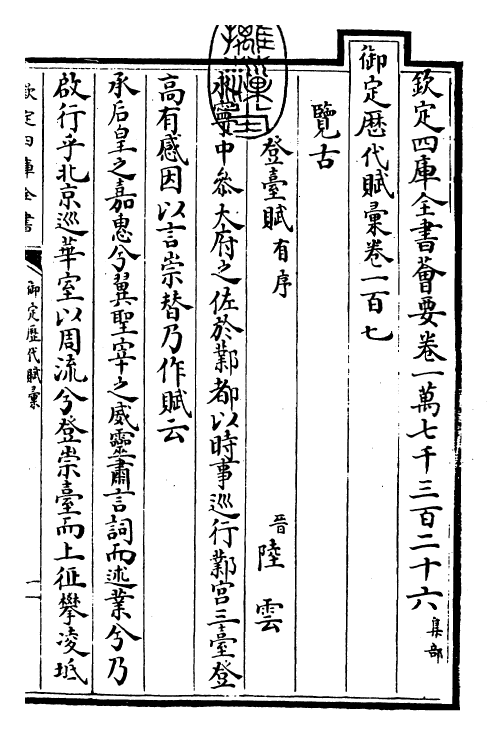 欽定四庫全書薈要卷一萬七千三百二十六 集部
御定歴代賦彙卷一百七
覽古
登臺賦 有序 晉 陸雲
永寧中參大府之佐於鄴都以時事巡行鄴宫三臺登
高有感因以言崇替乃作賦云
承后皇之嘉惠兮翼聖宰之威靈肅言詞而述業兮乃
啟行乎北京巡華室以周流兮登崇臺而上征攀凌坻
欽定四庫全書
御定歷代賦彙
一